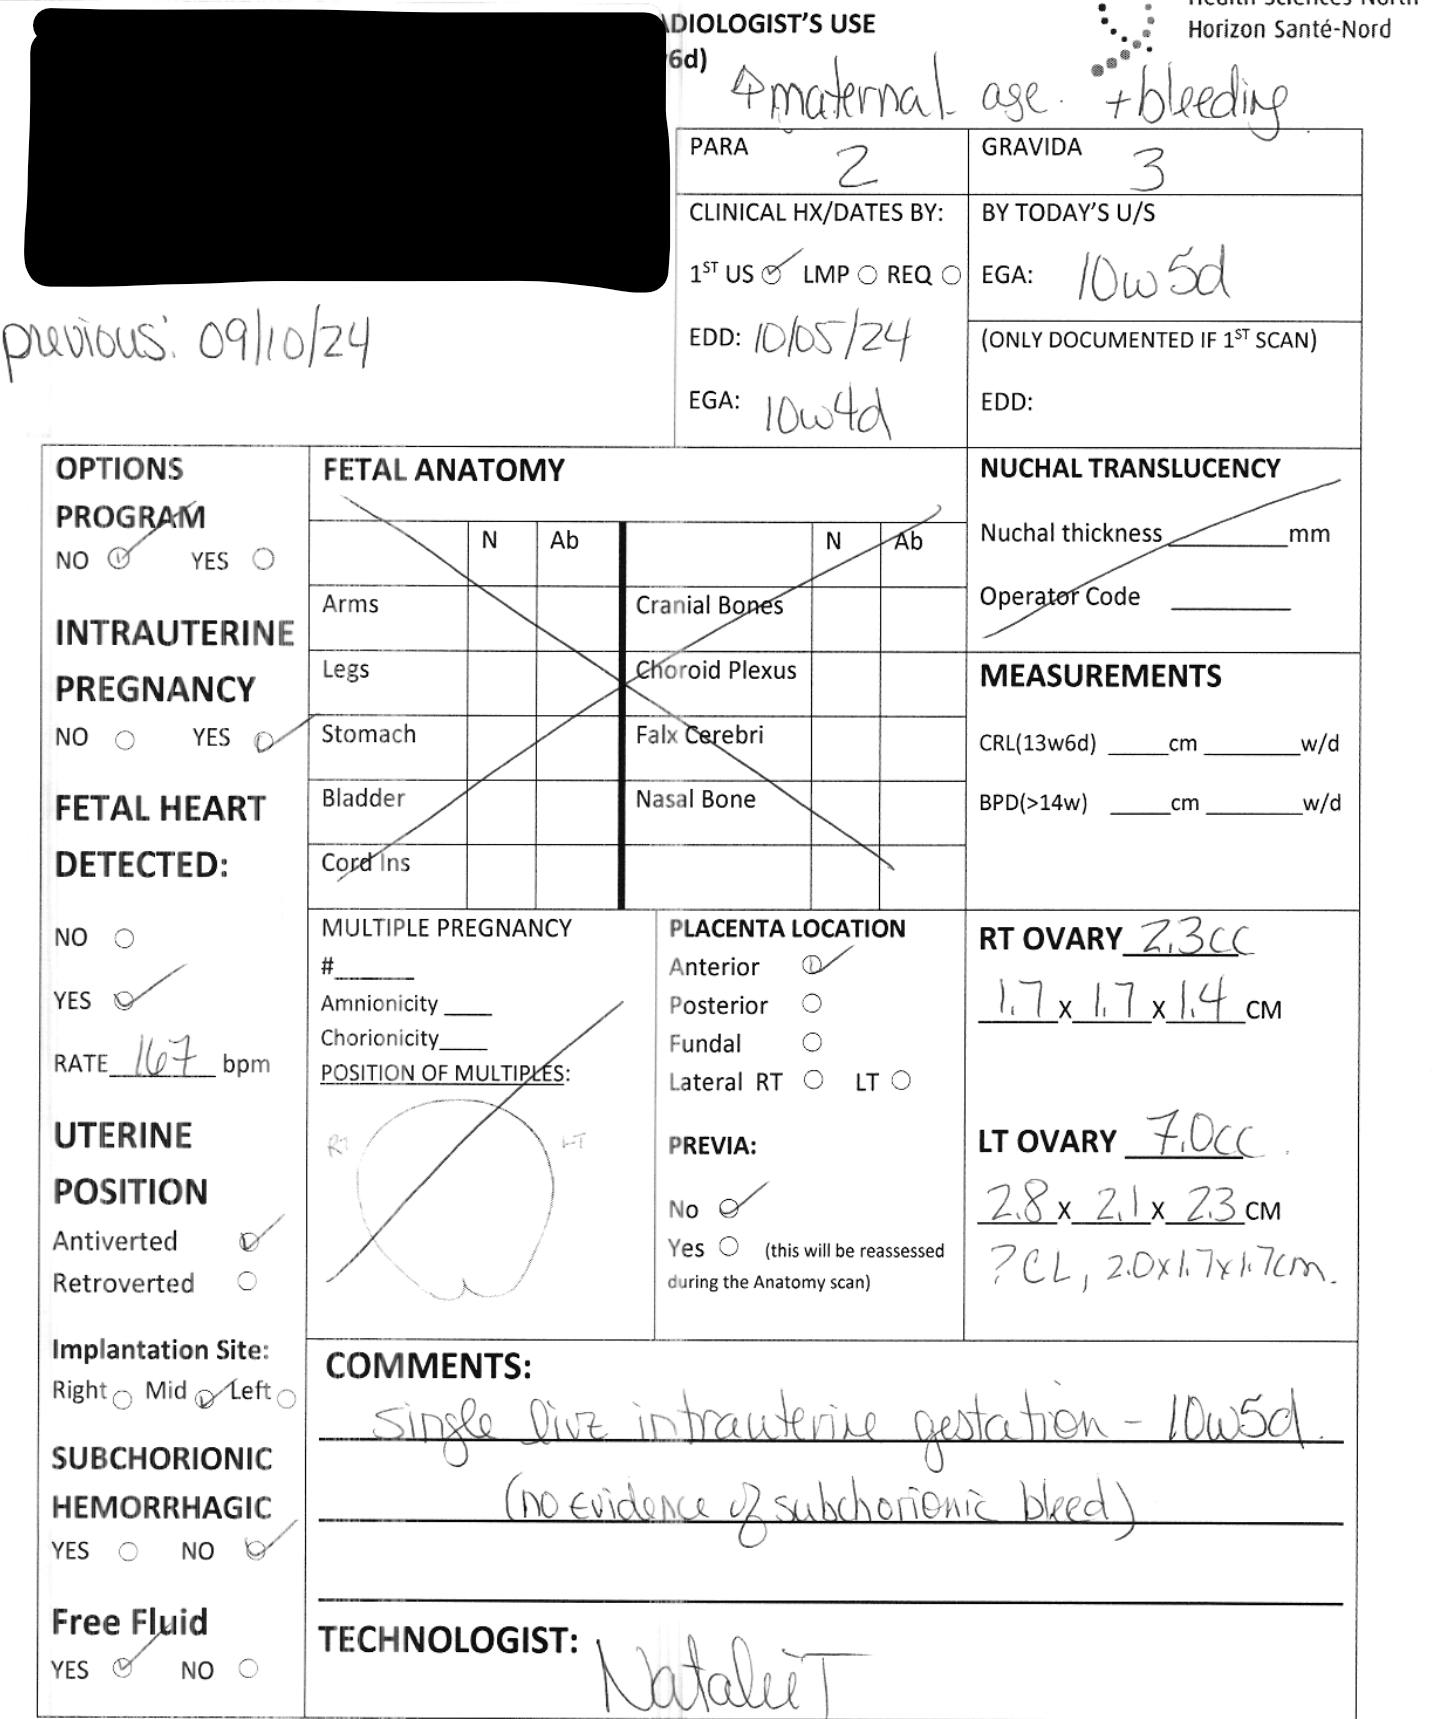 ADIOLOGIST'S USE
6d)
Horizon Santé-Nord
↑ maternal age. + bleeding
PARA 2
GRAVIDA 3
CLINICAL HX/DATES BY:
1ST US LMP REQ
EDD: 10/05/24
EGA: 10w4d
BY TODAY'S U/S
EGA: 10w5d
(ONLY DOCUMENTED IF 1ST SCAN)
EDD:
previous: 09/10/24
OPTIONS
PROGRAM
NO YES
INTRAUTERINE
PREGNANCY
NO YES
FETAL HEART
DETECTED:
NO
YES
RATE 167 bpm
UTERINE
POSITION
Antiverted
Retroverted
Implantation Site:
Right Mid Left
SUBCHORIONIC
HEMORRHAGIC
YES NO
Free Fluid
YES NO
FETAL ANATOMY
N Ab N Ab
Arms Cranial Bones
Legs Choroid Plexus
Stomach Falx Cerebri
Bladder Nasal Bone
Cord Ins
NUCHAL TRANSLUCENCY
Nuchal thickness mm
Operator Code
MEASUREMENTS
CRL(13w6d) cm w/d
BPD(>14w) cm w/d
MULTIPLE PREGNANCY
#
Amnionicity
Chorionicity
POSITION OF MULTIPLES:
RT LT
PLACENTA LOCATION
Anterior
Posterior
Fundal
Lateral RT LT
PREVIA:
No
Yes (this will be reassessed
during the Anatomy scan)
RT OVARY 2.3cc
1.7 x 1.7 x 1.4 CM
LT OVARY 7.0cc
2.8 x 2.1 x 2.3 CM
? CL, 2.0x1.7x1.7cm.
COMMENTS:
single live intrauterine gestation - 10w5d.
(no evidence of subchorionic bleed)
TECHNOLOGIST: Natalie T